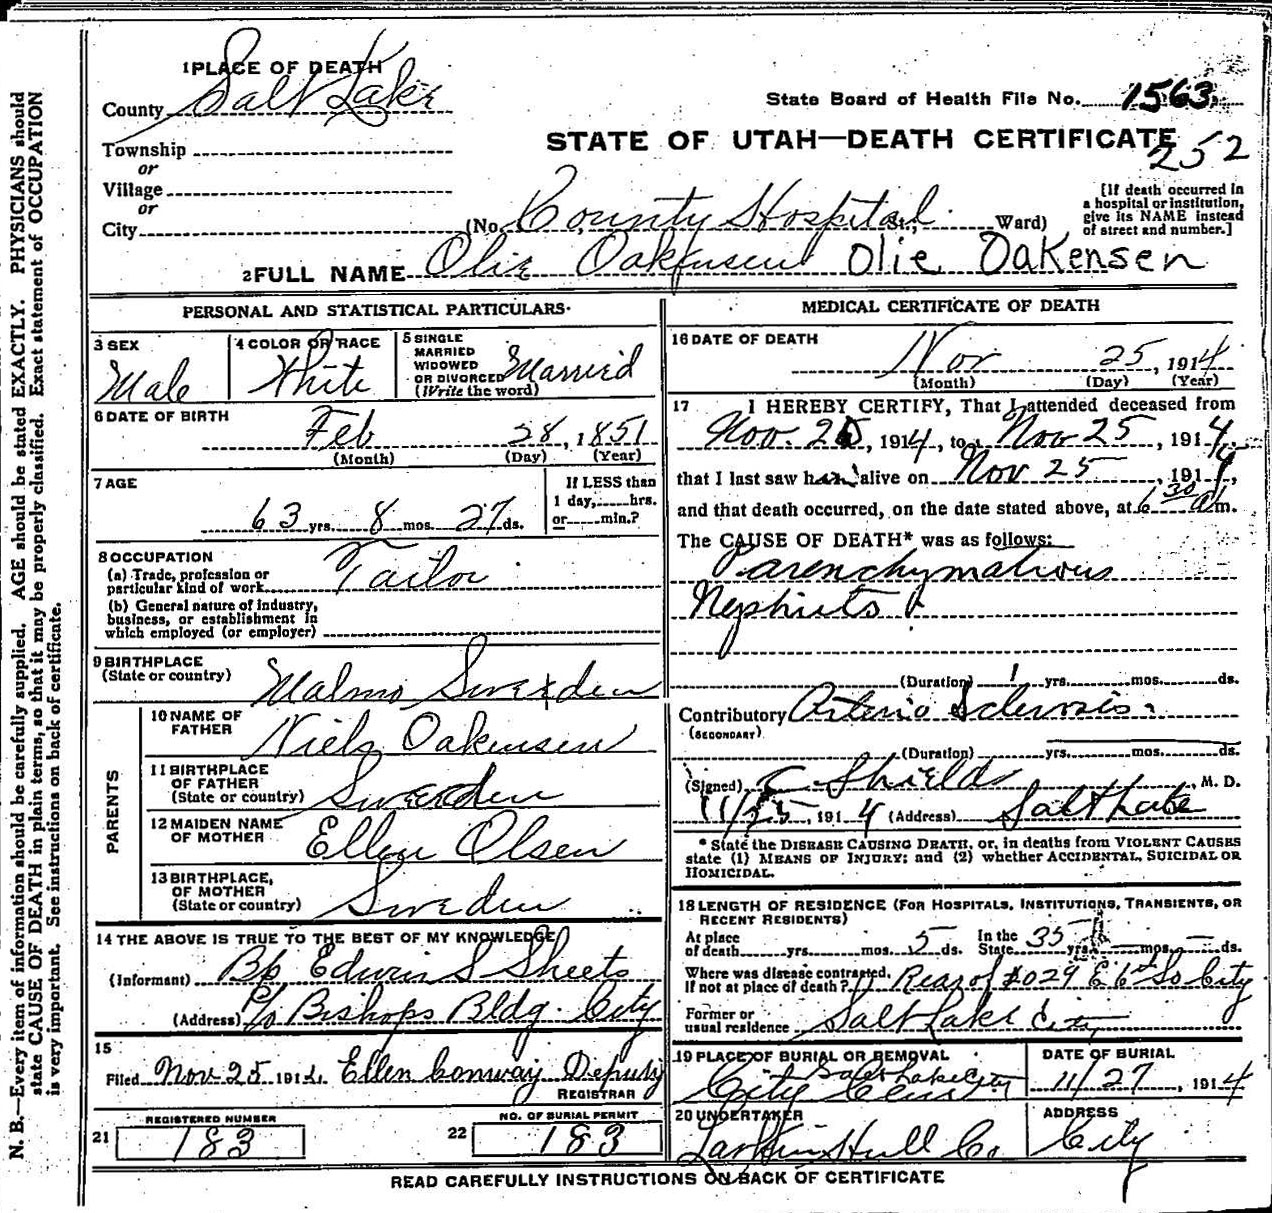 1 PLACE OF DEATH
County Salt Lake
State Board of Health File No. 1563
STATE OF UTAH—DEATH CERTIFICATE
252
Township
or
Village
or
City
(No. County Hospital St.; Ward)
[If death occurred in a hospital or institution, give its NAME instead of street and number.]
2 FULL NAME Olie Oakensen Olie Oakensen
PERSONAL AND STATISTICAL PARTICULARS
3 SEX
Male
4 COLOR OR RACE
White
5 SINGLE
MARRIED
WIDOWED
OR DIVORCED
(Write the word)
Married
6 DATE OF BIRTH
Feb 28, 1851
(Month) (Day) (Year)
7 AGE
63 yrs. 8 mos. 27 ds.
If LESS than
1 day, hrs.
or min.?
8 OCCUPATION
(a) Trade, profession or
particular kind of work Tailor
(b) General nature of industry,
business, or establishment in
which employed (or employer)
9 BIRTHPLACE
(State or country) Malmo Sweden
PARENTS
10 NAME OF
FATHER Niels Oakensen
11 BIRTHPLACE
OF FATHER
(State or country) Sweden
12 MAIDEN NAME
OF MOTHER Ellen Olsen
13 BIRTHPLACE,
OF MOTHER
(State or country) Sweden
14 THE ABOVE IS TRUE TO THE BEST OF MY KNOWLEDGE
(Informant) Bp Edwin S Sheets
(Address) c/o Bishops Bldg. City
15
Filed Nov 25 1914. Ellen Conway Deputy
REGISTRAR
REGISTERED NUMBER
21 183
NO. OF BURIAL PERMIT
22 183
MEDICAL CERTIFICATE OF DEATH
16 DATE OF DEATH
Nov 25, 1914
(Month) (Day) (Year)
17 I HEREBY CERTIFY, That I attended deceased from
Nov. 20, 1914, to Nov 25, 1914,
that I last saw him alive on Nov 25, 1914,
and that death occurred, on the date stated above, at 6 30 a m.
The CAUSE OF DEATH* was as follows:
Parenchymatious
Nephritis
(Duration) 1 yrs. mos. ds.
Contributory Arterio Sclerosis.
(SECONDARY)
(Duration) yrs. mos. ds.
(Signed) C Shields, M. D.
11/25, 1914 (Address) Salt Lake
* State the DISEASE CAUSING DEATH, or, in deaths from VIOLENT CAUSES
state (1) MEANS OF INJURY; and (2) whether ACCIDENTAL, SUICIDAL OR
HOMICIDAL.
18 LENGTH OF RESIDENCE (FOR HOSPITALS, INSTITUTIONS, TRANSIENTS, OR
RECENT RESIDENTS)
At place
of death yrs. mos. 5 ds.
In the
State 35 yrs. — mos. — ds.
Where was disease contracted,
If not at place of death? Rear of 1029 E 6th So City
Former or
usual residence Salt Lake City
19 PLACE OF BURIAL OR REMOVAL
Salt Lake City
City Cem
DATE OF BURIAL
11/27, 1914
20 UNDERTAKER
Larkin Hull Co.
ADDRESS
City
READ CAREFULLY INSTRUCTIONS ON BACK OF CERTIFICATE
N. B.—Every item of information should be carefully supplied. AGE should be stated EXACTLY. PHYSICIANS should
state CAUSE OF DEATH in plain terms, so that it may be properly classified. Exact statement of OCCUPATION
is very important. See instructions on back of certificate.